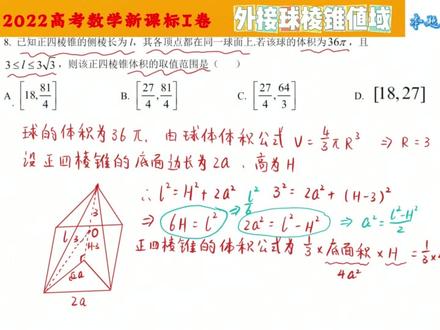 2022高考数学新课标I卷
外接球棱锥值域
8. 已知正四棱锥的侧棱长为l, 其各顶点都在同一球面上,若该球的体积为36π, 且
3≤l≤3√3, 则该正四棱锥体积的取值范围是 ( )
A. [18, 81/4]
B. [27/4, 81/4]
C. [27/4, 64/3]
D. [18,27]
球的体积为36π, 由球体体积公式 V=4/3πR³ ⇒ R=3
设正四棱锥的底面边长为2a, 高为H
∴ l²=H²+2a² 3²=2a²+(H-3)²
⇒ 6H=l² ⇒ l²/6 2a²=l²-H² ⇒ a²=(l²-H²)/2
正四棱锥的体积公式为 1/3×底面积×H =1/3×4
4a²
3
l
3
O
H-3
√2a
2a